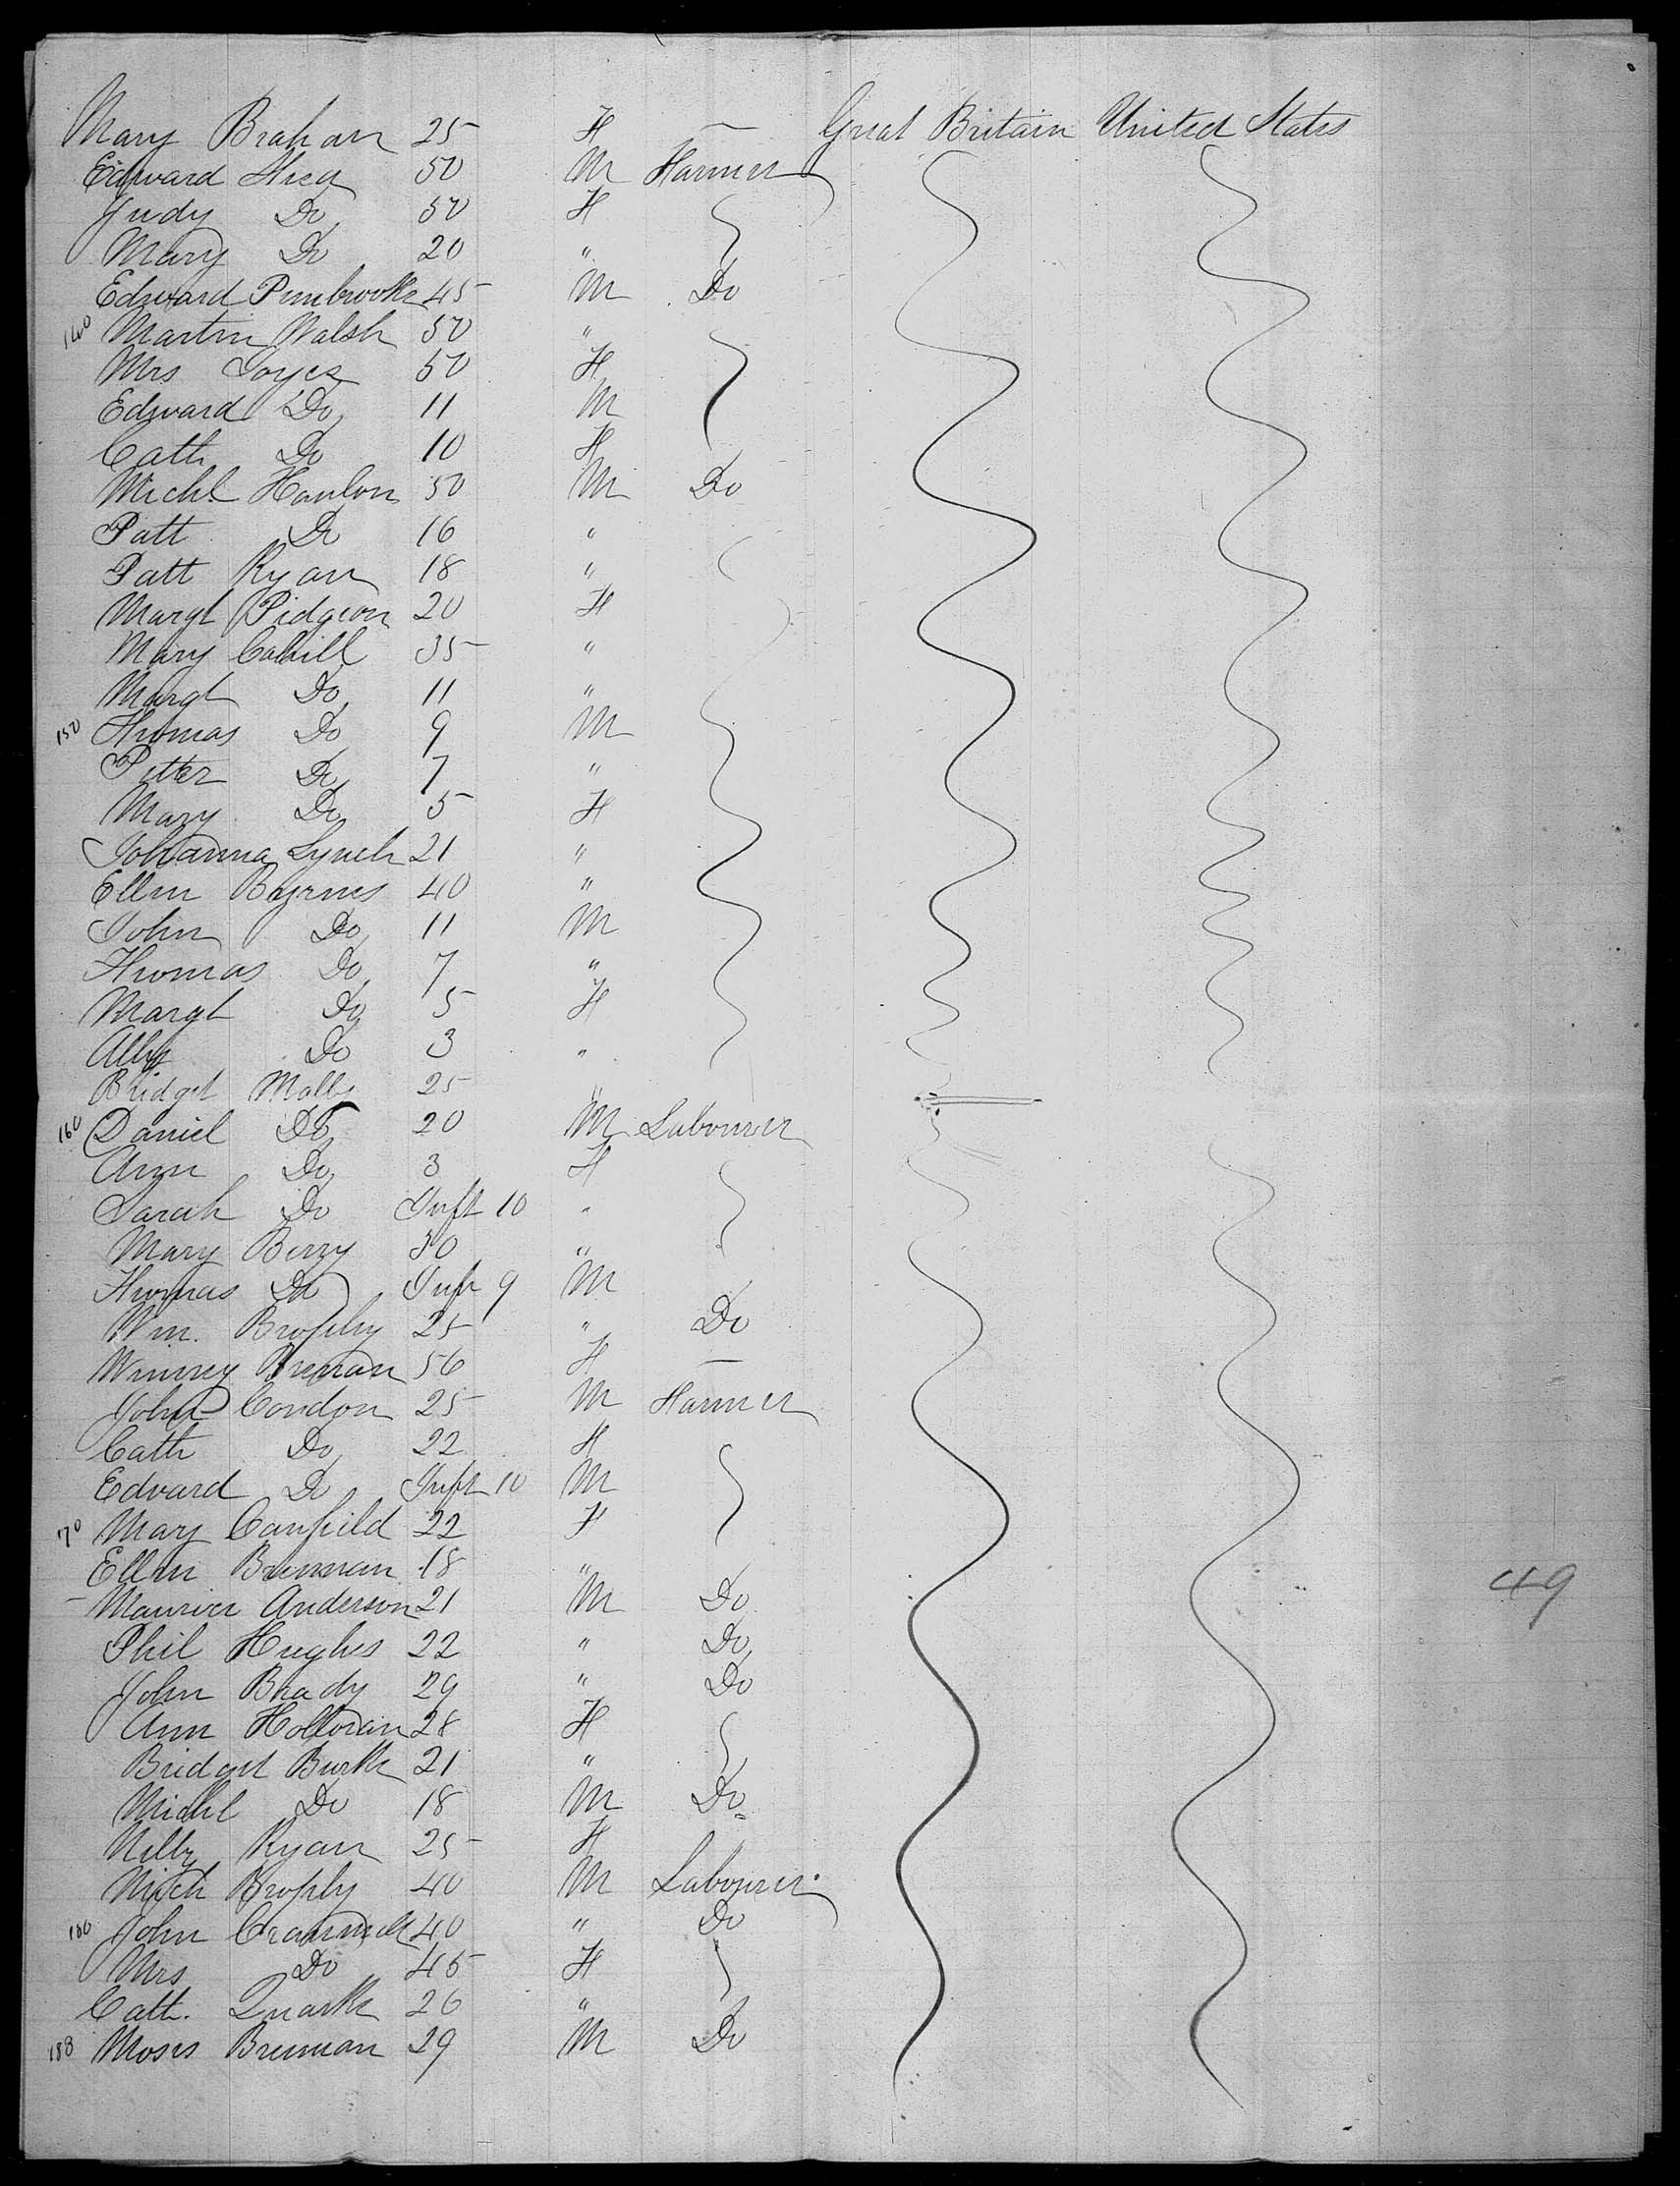 Mary Brahan 25 F — Great Britain United States
Edward Shea 50 M Farmer
Judy Do 50 F
Mary Do 20 "
Edward Pembrooke 45 M Do
140 Martin Walsh 50 "
Mrs Joyce 50 F
Edward Do 11 M
Cath Do 10 F
Michl Hanlon 50 M Do
Patt Do 16 "
Patt Ryan 18 "
Margt Pidgeon 20 F
Mary Cahill 35 "
Margt Do 11 "
150 Thomas Do 9 M
Peter Do 7 "
Mary Do 5 F
Johanna Lynch 21 "
Ellen Byrnes 40 "
John Do 11 M
Thomas Do 7 "
Margt Do 5 F
Ally Do 3 "
Bridget Mally 25 "
160 Daniel Do 20 M Labourer
Ann Do 3 F
Sarah Do Inft 10 "
Mary Berry 30 "
Thomas Do Inft 9 M
Wm. Brophy 25 " Do
Winney Brenan 56 F —
John Condon 25 M Farmer
Cath Do 22 F
Edward Do Inft 10 M
70 Mary Canfield 22 F
Ellen Brennan 18 "
Maurice Anderson 21 M Do
Phil Hughes 22 " Do
John Brady 29 " Do
Ann Holloran 28 F
Bridget Burke 21 "
Michl Do 18 M Do
Nelly Ryan 25 F
Mich Brophy 40 M Labourer
180 John 40 " Do
Mrs Do 45 F
Cath. Quarke 26 "
183 Moses Brennan 29 M Do
49